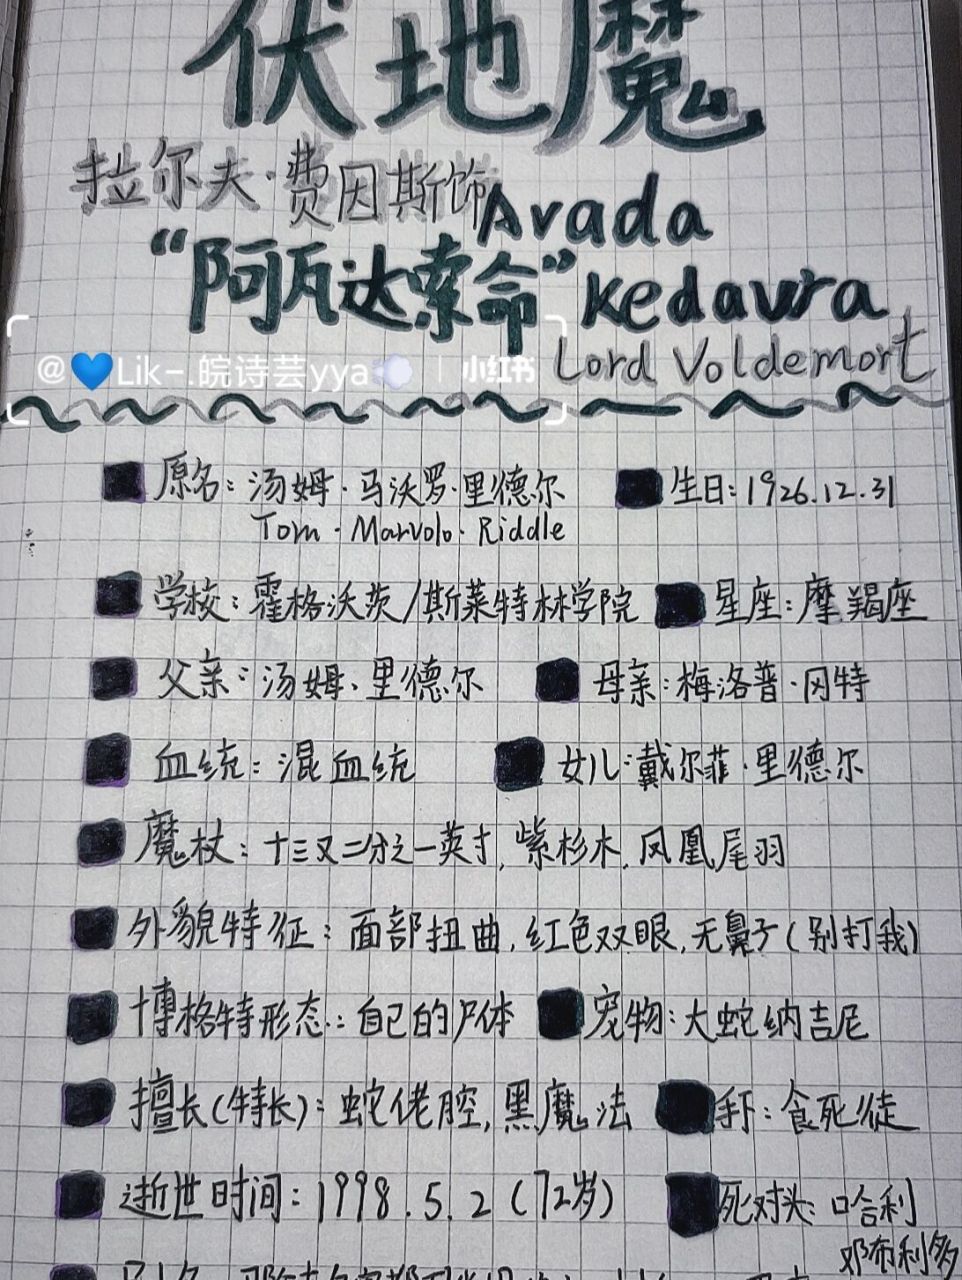 伏地魔
拉尔夫·费因斯饰 Avada
“阿瓦达索命” Kedavra
@💙Lik-.皖诗芸yya💨 | 小红书 Lord Voldemort
原名：汤姆·马沃罗·里德尔 生日：1926.12.31
Tom·Marvolo·Riddle
学校：霍格沃茨/斯莱特林学院 星座：摩羯座
父亲：汤姆·里德尔 母亲：梅洛普·冈特
血统：混血统 女儿：戴尔菲·里德尔
魔杖：十三又二分之一英寸，紫杉木，凤凰尾羽
外貌特征：面部扭曲，红色双眼，无鼻子（别打我）
博格特形态：自己的尸体 宠物：大蛇纳吉尼
擅长（特长）：蛇佬腔，黑魔法 手下：食死徒
逝世时间：1998.5.2（72岁） 死对头：哈利
邓布利多